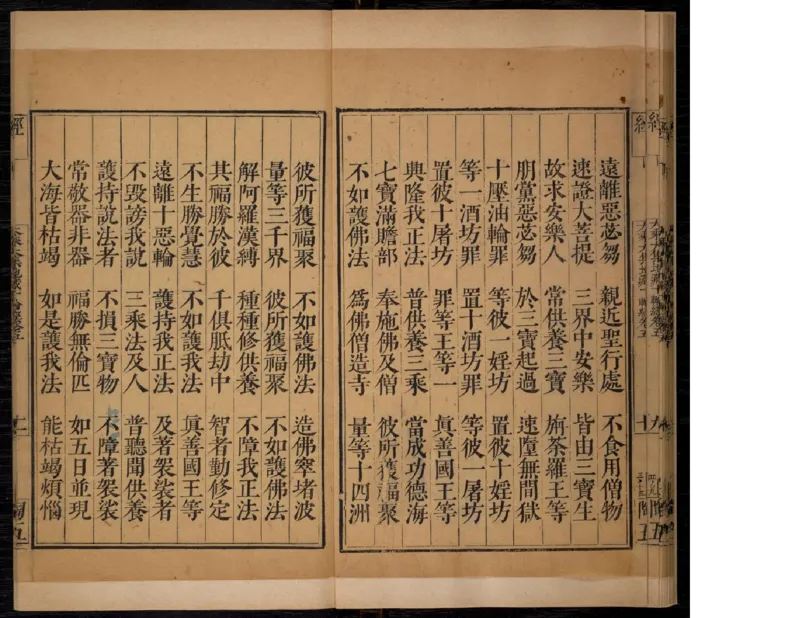 遠離惡苾芻 親近聖行處 不食用僧物
速證大菩提 三界中安樂 皆由三寶生
故求安樂人 常供養三寶 旃荼羅王等
朋黨惡苾芻 於三寶起過 速墮無間獄
十壓油輪罪 等彼一婬坊 置彼十婬坊
等一酒坊罪 置十酒坊罪 等彼一屠坊
置彼十屠坊 罪等王等一 眞善國王等
興隆我正法 普供養三乘 當成功德海
七寶滿贍部 奉施佛及僧 彼所獲福聚
不如護佛法 爲佛僧造寺 量等十四洲
彼所獲福聚 不如護佛法 造佛窣堵波
量等三千界 彼所獲福聚 不如護佛法
解阿羅漢縛 種種修供養 不障我正法
其福勝於彼 千俱胝劫中 智者勤修定
不生勝覺慧 不如護我法 眞善國王等
遠離十惡輪 護持我正法 及著袈裟者
不毀謗我說 三乘法及人 普聽聞供養
護持說法者 不損三寶物 不障著袈裟
常敬器非器 福勝無倫匹 如五日並現
大海皆枯竭 如是護我法 能枯竭煩惱